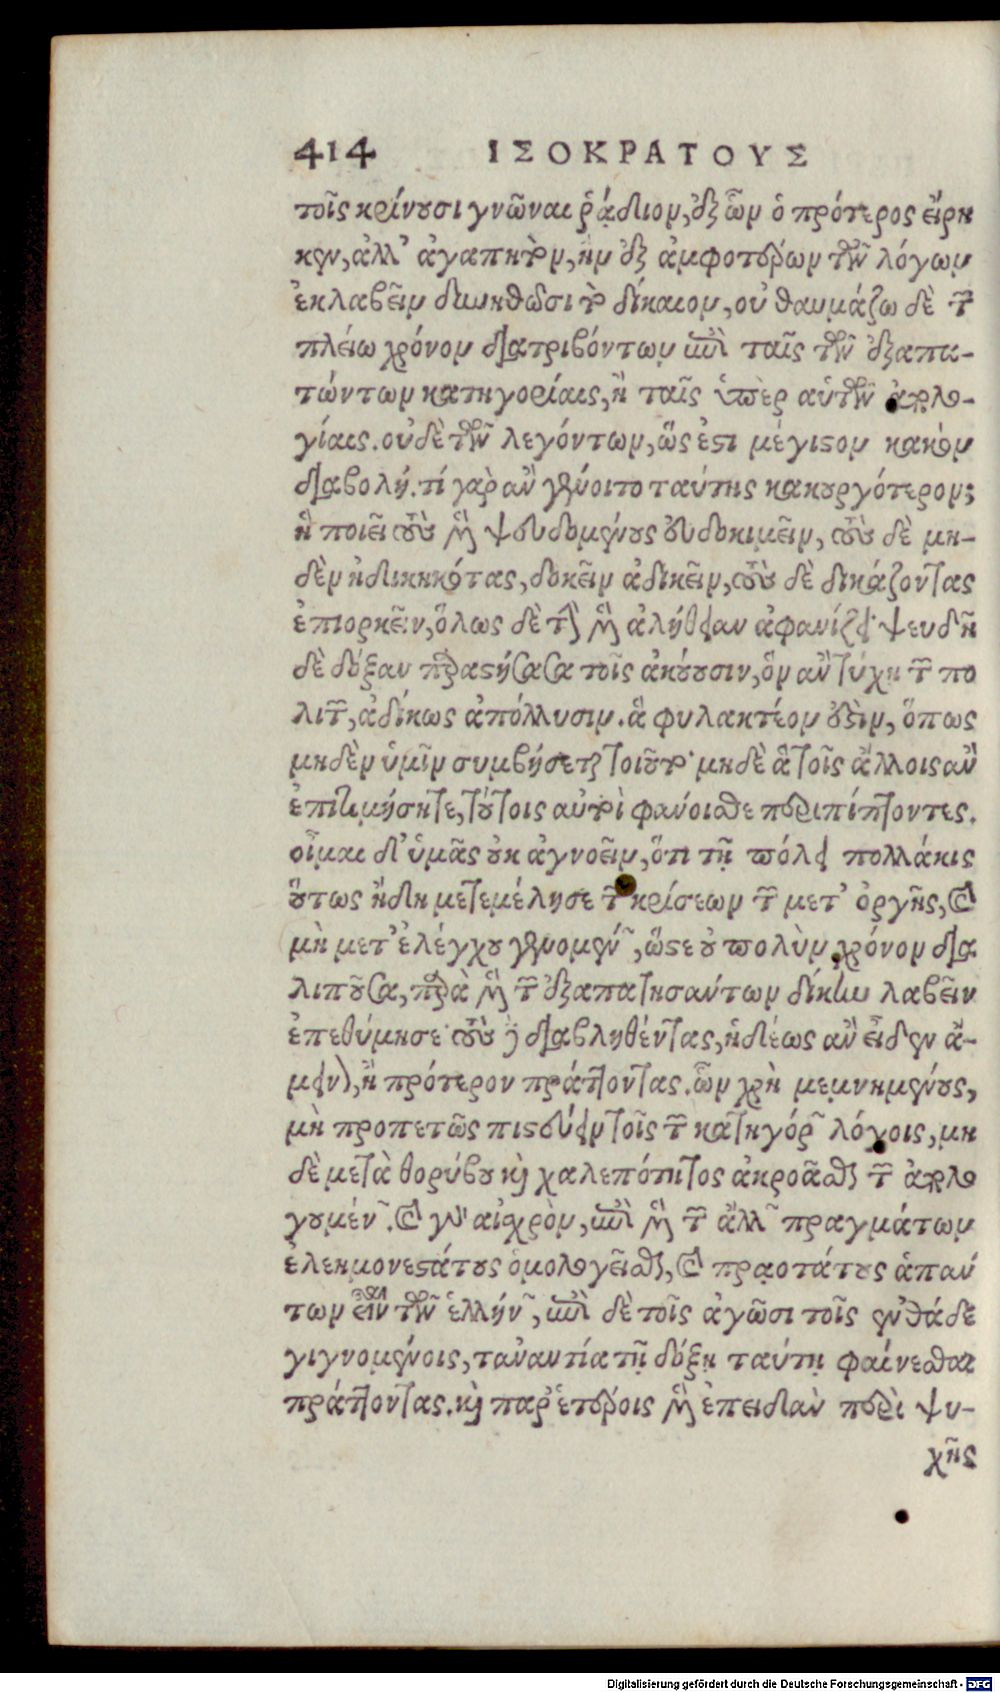 414 ΙΣΟΚΡΑΤΟΥΣ
τοῖς κρίνουσι γνῶναι ῥᾴδιον, ἐξ ὧν ὁ πρότερος εἴρη
κεν, ἀλλ' ἀγαπητὸν, ἢν ἐξ ἀμφοτέρων τῶν λόγων
ἐκλαβεῖν δυνηθῶσι τὸ δίκαιον, οὐ θαυμάζω δὲ τῶν
πλείω χρόνον διατριβόντων ἐπὶ ταῖς τῶν ἐξαπα-
τώντων κατηγορίαις, ἢ ταῖς ὑπὲρ αὑτῶν ἀπολο-
γίαις. οὐδὲ τῶν λεγόντων, ὥς ἐστι μέγιστον κακὸν
διαβολή. τί γὰρ ἂν γένοιτο ταύτης κακουργότερον;
ἣ ποιεῖ τοὺς μὲν ψευδομένους εὐδοκιμεῖν, τοὺς δὲ μη-
δὲν ἠδικηκότας, δοκεῖν ἀδικεῖν, τοὺς δὲ δικάζοντας
ἐπιορκεῖν, ὅλως δὲ τὴν μὲν ἀλήθειαν ἀφανίζει· ψευδῆ
δὲ δόξαν παραστήσασα τοῖς ἀκούουσιν, ὃν ἂν τύχῃ τῶν πο
λιτῶν, ἀδίκως ἀπόλλυσιν. ἃ φυλακτέον ἐστὶν, ὅπως
μηδὲν ὑμῖν συμβήσεται τοιοῦτο· μηδὲ ἃ τοῖς ἄλλοις ἂν
ἐπιτιμήσητε, τούτοις αὐτοὶ φανεῖσθε περιπίπτοντες.
οἶμαι δ' ὑμᾶς οὐκ ἀγνοεῖν, ὅτι τῇ πόλει πολλάκις
οὕτως ἤδη μετεμέλησε τῶν κρίσεων τῶν μετ' ὀργῆς, καὶ
μὴ μετ' ἐλέγχου γενομένων, ὥστε οὐ πολὺν χρόνον δια
λιποῦσα, παρὰ μὲν τῶν ἐξαπατησάντων δίκην λαβεῖν
ἐπεθύμησε· τοὺς δὲ διαβληθέντας, ἡδέως ἂν εἶδεν ἄ-
μεινον, ἢ πρότερον πράττοντας. ὧν χρὴ μεμνημένους,
μὴ προπετῶς πιστεύειν τοῖς τῶν κατηγόρων λόγοις, μη
δὲ μετὰ θορύβου καὶ χαλεπότητος ἀκροᾶσθαι τῶν ἀπολο
γουμένων. καὶ γὰρ αἰσχρὸν, ἐπὶ μὲν τῶν ἄλλων πραγμάτων
ἐλεημονεστάτους ὁμολογεῖσθαι, καὶ πρᾳοτάτους ἁπάν
των εἶναι τῶν ἑλλήνων, ἐπὶ δὲ τοῖς ἀγῶσι τοῖς ἐνθάδε
γιγνομένοις, τἀναντία τῇ δόξῃ ταύτῃ φαίνεσθαι
πράττοντας. καὶ παρ' ἑτέροις μὲν ἐπειδὰν περὶ ψυ-
χῆς
Digitalisierung gefördert durch die Deutsche Forschungsgemeinschaft - DFG